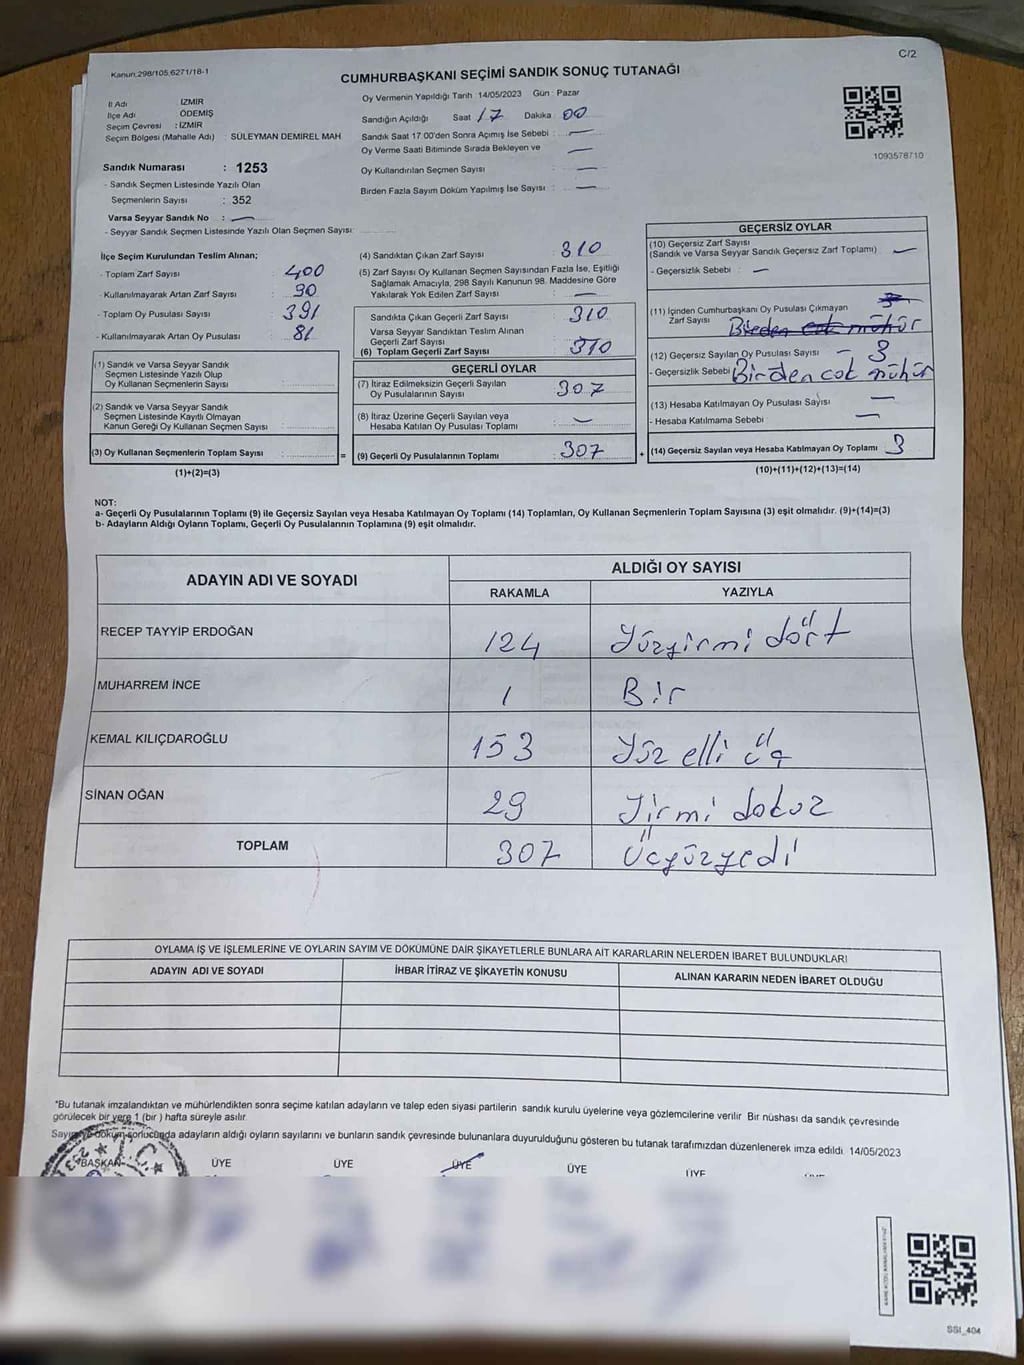 C/2
Kanun:298/105;6271/18-1
CUMHURBAŞKANI SEÇİMİ SANDIK SONUÇ TUTANAĞI
İl Adı İZMİR
İlçe Adı ÖDEMİŞ
Seçim Çevresi : İZMİR
Seçim Bölgesi (Mahalle Adı) : SÜLEYMAN DEMİREL MAH
Sandık Numarası : 1253
- Sandık Seçmen Listesinde Yazılı Olan
Seçmenlerin Sayısı : 352
Varsa Seyyar Sandık No : —
- Seyyar Sandık Seçmen Listesinde Yazılı Olan Seçmen Sayısı:
Oy Vermenin Yapıldığı Tarih : 14/05/2023 Gün : Pazar
Sandığın Açıldığı Saat 17 Dakika : 00
Sandık Saat 17.00'den Sonra Açımış İse Sebebi : —
Oy Verme Saati Bitiminde Sırada Bekleyen ve —
Oy Kullandırılan Seçmen Sayısı : —
Birden Fazla Sayım Döküm Yapılmış İse Sayısı : —
1093578710
İlçe Seçim Kurulundan Teslim Alınan;
- Toplam Zarf Sayısı : 400
- Kullanılmayarak Artan Zarf Sayısı : 90
- Toplam Oy Pusulası Sayısı : 391
- Kullanılmayarak Artan Oy Pusulası : 81
(1) Sandık ve Varsa Seyyar Sandık
Seçmen Listesinde Yazılı Olup
Oy Kullanan Seçmenlerin Sayısı :
(2) Sandık ve Varsa Seyyar Sandık
Seçmen Listesinde Kayıtlı Olmayan
Kanun Gereği Oy Kullanan Seçmen Sayısı :
(3) Oy Kullanan Seçmenlerin Toplam Sayısı : =
(1)+(2)=(3)
(4) Sandıktan Çıkan Zarf Sayısı : 310
(5) Zarf Sayısı Oy Kullanan Seçmen Sayısından Fazla İse, Eşitliği
Sağlamak Amacıyla, 298 Sayılı Kanunun 98. Maddesine Göre
Yakılarak Yok Edilen Zarf Sayısı : —
Sandıkta Çıkan Geçerli Zarf Sayısı : 310
Varsa Seyyar Sandıktan Teslim Alınan
Geçerli Zarf Sayısı
(6) Toplam Geçerli Zarf Sayısı : 310
GEÇERLİ OYLAR
(7) İtiraz Edilmeksizin Geçerli Sayılan
Oy Pusulalarının Sayısı : 307
(8) İtiraz Üzerine Geçerli Sayılan veya
Hesaba Katılan Oy Pusulası Toplamı : —
(9) Geçerli Oy Pusulalarının Toplamı : 307 +
GEÇERSİZ OYLAR
(10) Geçersiz Zarf Sayısı
(Sandık ve Varsa Seyyar Sandık Geçersiz Zarf Toplamı) —
- Geçersizlik Sebebi : —
(11) İçinden Cumhurbaşkanı Oy Pusulası Çıkmayan
Zarf Sayısı
(12) Geçersiz Sayılan Oy Pusulası Sayısı — 3
- Geçersizlik Sebebi Birden cok mühür
(13) Hesaba Katılmayan Oy Pusulası Sayısı —
- Hesaba Katılmama Sebebi : —
(14) Geçersiz Sayılan veya Hesaba Katılmayan Oy Toplamı : 3
(10)+(11)+(12)+(13)=(14)
NOT:
a- Geçerli Oy Pusulalarının Toplamı (9) ile Geçersiz Sayılan veya Hesaba Katılmayan Oy Toplamı (14) Toplamları, Oy Kullanan Seçmenlerin Toplam Sayısına (3) eşit olmalıdır. (9)+(14)=(3)
b- Adayların Aldığı Oyların Toplamı, Geçerli Oy Pusulalarının Toplamına (9) eşit olmalıdır.
ADAYIN ADI VE SOYADI ALDIĞI OY SAYISI
RAKAMLA YAZIYLA
RECEP TAYYİP ERDOĞAN 124 Yüzyirmi dört
MUHARREM İNCE 1 Bir
KEMAL KILIÇDAROĞLU 153 Yüz elli üç
SİNAN OĞAN 29 Yirmi dokuz
TOPLAM 307 Üçyüzyedi
OYLAMA İŞ VE İŞLEMLERİNE VE OYLARIN SAYIM VE DÖKÜMÜNE DAİR ŞİKAYETLERLE BUNLARA AİT KARARLARIN NELERDEN İBARET BULUNDUKLARI
ADAYIN ADI VE SOYADI İHBAR İTİRAZ VE ŞİKAYETİN KONUSU ALINAN KARARIN NEDEN İBARET OLDUĞU
*Bu tutanak imzalandıktan ve mühürlendikten sonra seçime katılan adayların ve talep eden siyasi partilerin sandık kurulu üyelerine veya gözlemcilerine verilir. Bir nüshası da sandık çevresinde
görülecek bir yere 1 (bir) hafta süreyle asılır.
Sayım ve döküm sonucunda adayların aldığı oyların sayılarını ve bunların sandık çevresinde bulunanlara duyurulduğunu gösteren bu tutanak tarafımızdan düzenlenerek imza edildi. 14/05/2023
BAŞKAN ÜYE ÜYE ÜYE ÜYE ÜYE
T.C.
SSI_404